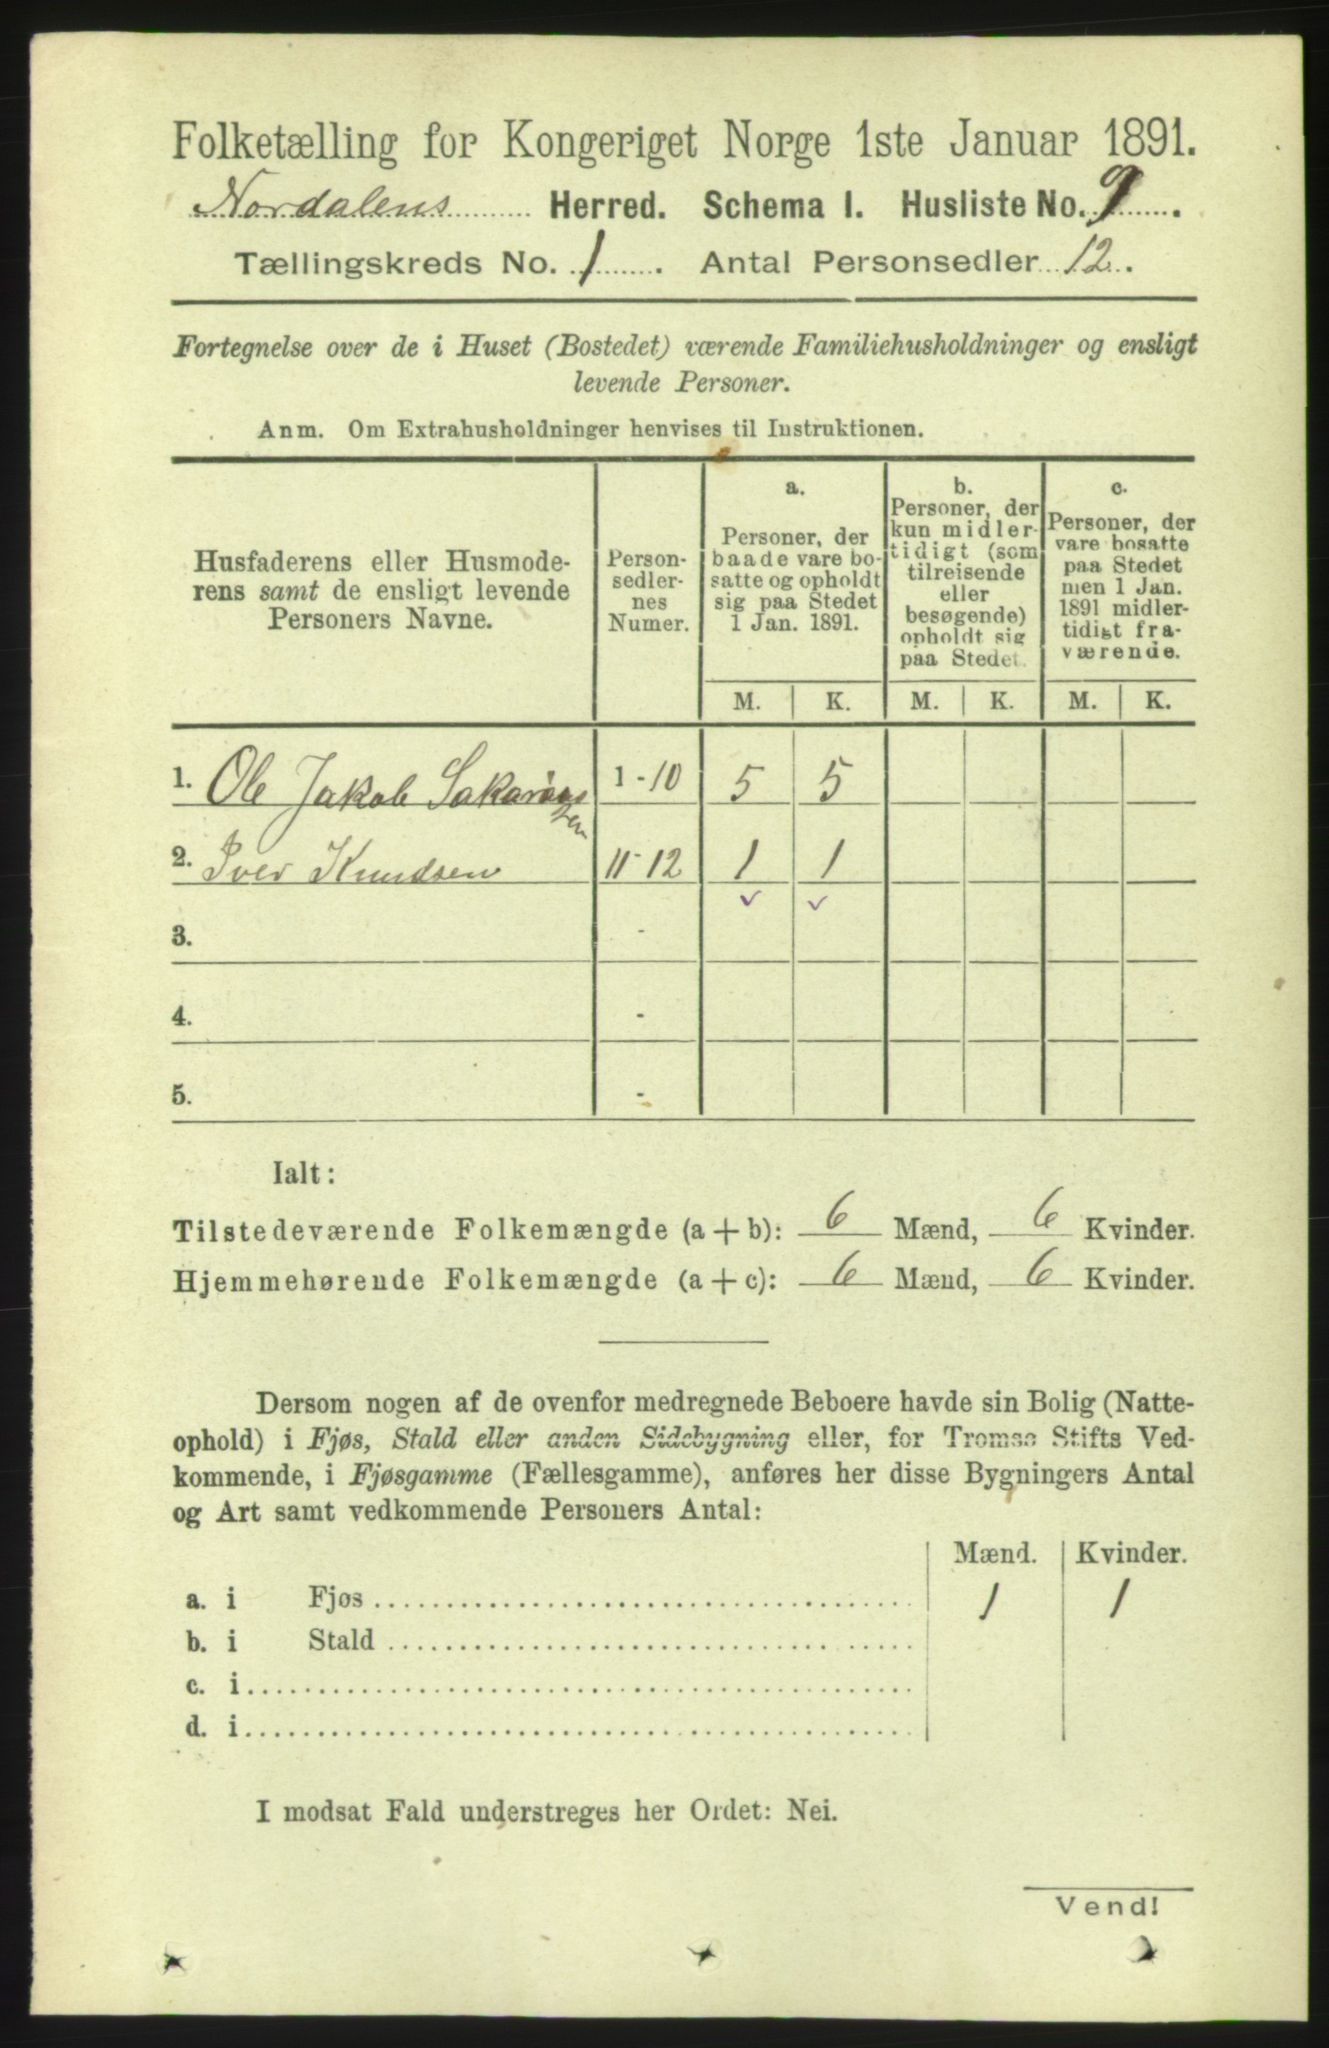 Folketælling for Kongeriget Norge 1ste Januar 1891.
Nordalens Herred. Schema I. Husliste No. 9.
Tællingskreds No. 1. Antal Personsedler 12.
Fortegnelse over de i Huset (Bostedet) værende Familiehusholdninger og ensligt
levende Personer.
Anm. Om Extrahusholdninger henvises til Instruktionen.
Husfaderens eller Husmode-
rens samt de ensligt levende
Personers Navne.
Person-
sedler-
nes
Numer.
a.
Personer, der
baade vare bo-
satte og opholdt
sig paa Stedet
1 Jan. 1891.
b.
Personer, der
kun midler-
tidigt (som
tilreisende
eller
besøgende)
opholdt sig
paa Stedet.
c.
Personer, der
vare bosatte
paa Stedet
men 1 Jan.
1891 midler-
tidigt fra-
værende.
M. K. M. K. M. K.
1. Ole Jakob 1-10 5 5
2. Iver Knudsen 11-12 1 1
3. -
4. -
5. -
Ialt:
Tilstedeværende Folkemængde (a + b): 6 Mænd, 6 Kvinder.
Hjemmehørende Folkemængde (a + c): 6 Mænd, 6 Kvinder.
Dersom nogen af de ovenfor medregnede Beboere havde sin Bolig (Natte-
ophold) i Fjøs, Stald eller anden Sidebygning eller, for Tromsø Stifts Ved-
kommende, i Fjøsgamme (Fællesgamme), anføres her disse Bygningers Antal
og Art samt vedkommende Personers Antal:
Mænd. Kvinder.
a. i Fjøs 1 1
b. i Stald
c. i
d. i
I modsat Fald understreges her Ordet: Nei.
Vend!